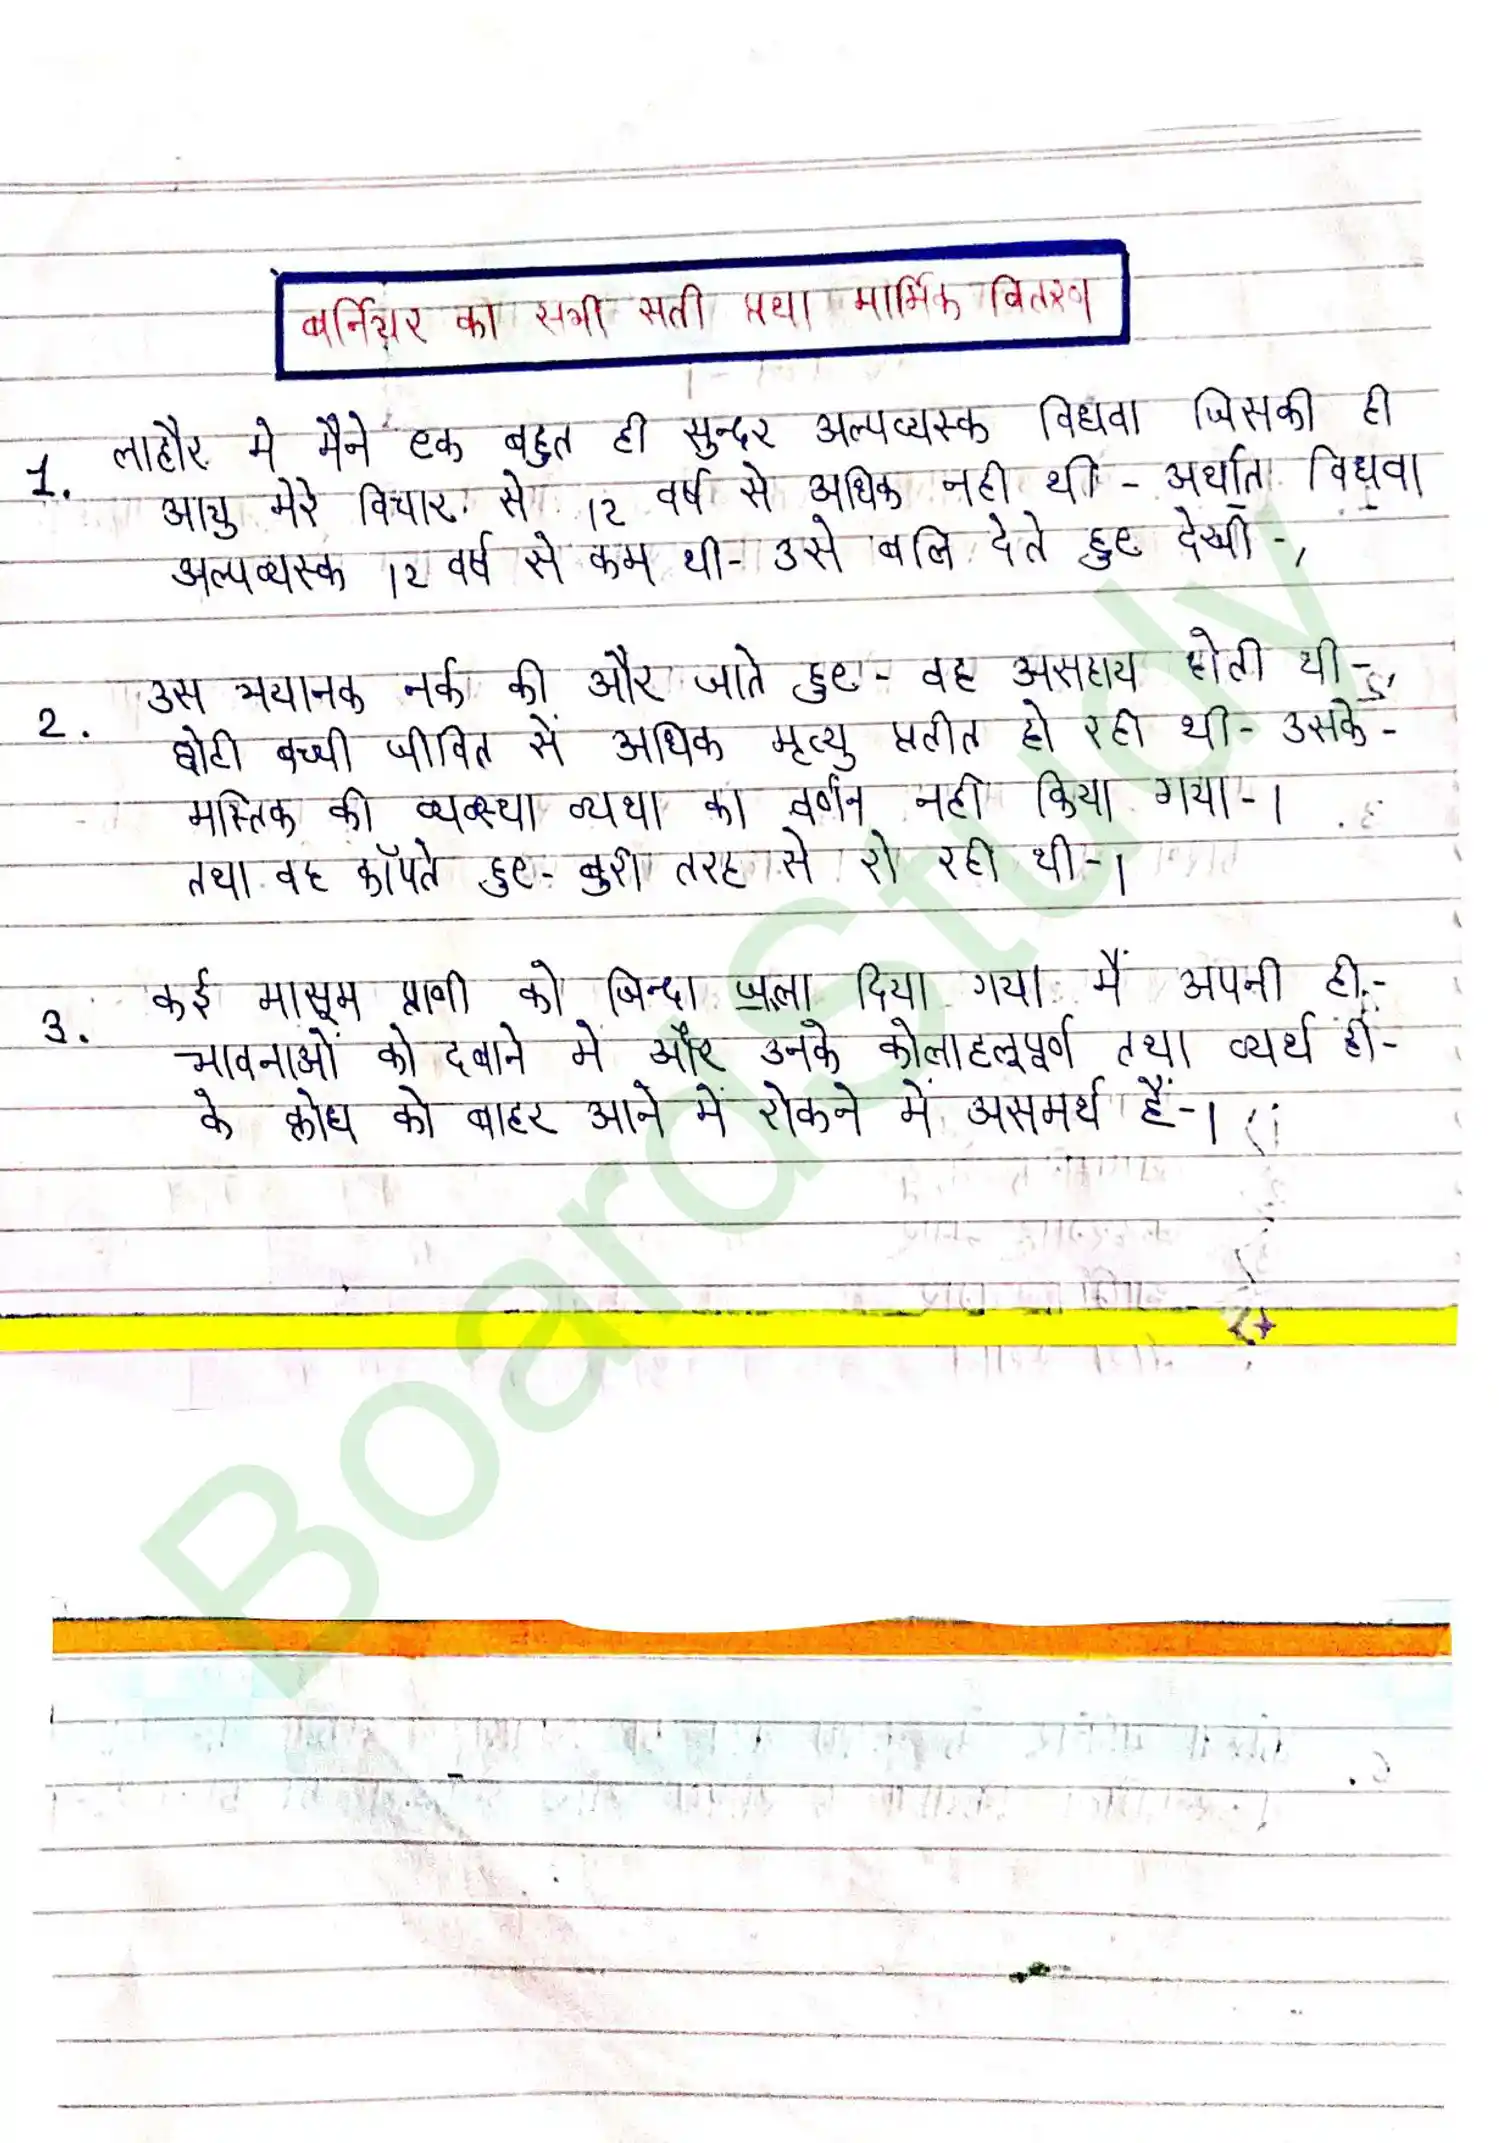 बर्नियर का सभी सती प्रथा मार्मिक वितरण
1. लाहौर मे मैने एक बहुत ही सुन्दर अल्पव्यस्क विधवा जिसकी ही
आयु मेरे विचार से 12 वर्ष से अधिक नही थी - अर्थात विधवा
अल्पव्यस्क 12 वर्ष से कम थी- उसे बलि देते हुए देखी -।
2. उस भयानक नर्क की और जाते हुए - वह असहाय होती थी -
छोटी बच्ची जीवित सें अधिक मृत्यु प्रतीत हो रही थी - उसके -
मस्तिक की व्यवस्था व्यथा का वर्णन नही किया गया -।
तथा वह कॉपते हुए - बुरी तरह से रो रही थी -।
3. कई मासूम प्राणी को जिन्दा जला दिया गया मैं अपनी ही -
भावनाओं को दबाने मे और उनके कोलाहलपूर्ण तथा व्यर्थ ही -
के क्रोध को बाहर आने में रोकने में असमर्थ हैं -।
BoardStudy